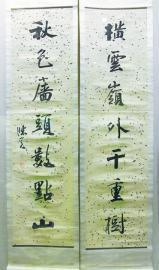 橫雲嶺外千重樹
秋色牆頭數點山